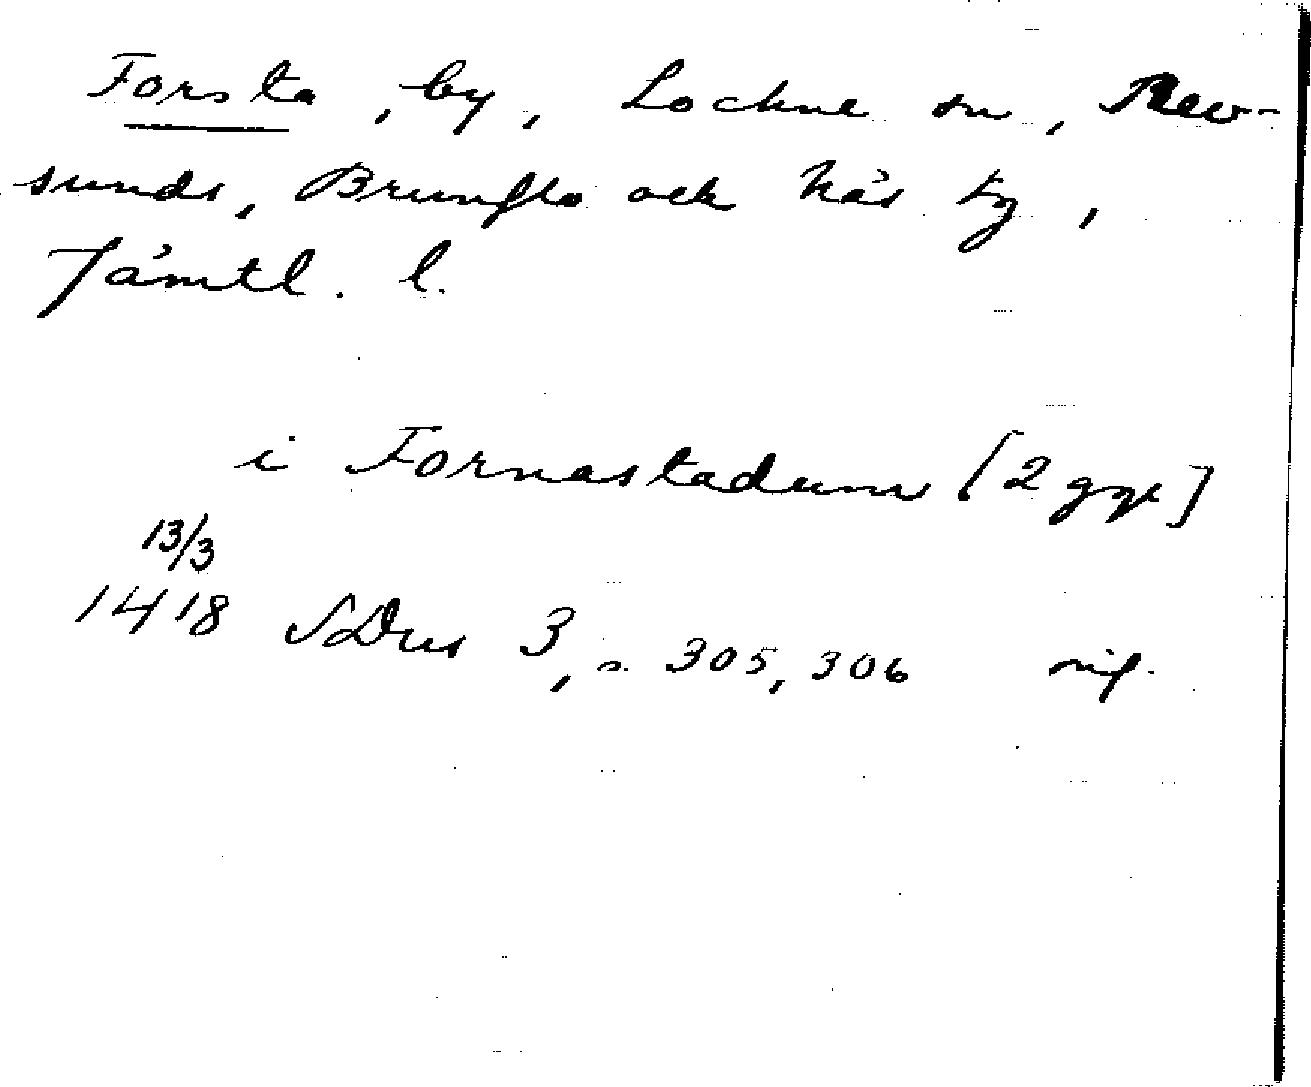 Forsta, by, Lockne sn, Rev-
sunds, Brunflo och Näs tg,
Jämtl. l.
i Fornastadum [2 ggr]
13/3
1418 SDns 3, s. 305, 306 sig.